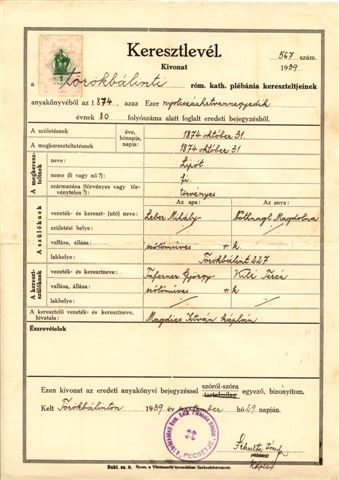 Keresztlevél.
Kivonat
567 szám.
1939
a Törökbálinti róm. kath. plébánia kereszteltjeinek
anyakönyvéből az 1874, azaz Ezer nyolcszázhetvennegyedik
évnek 80 folyószáma alatt foglalt eredeti bejegyzésből.
A születésnek éve, hónapja, napja: 1874 október 31
A megkereszteltetésnek 1874 október 31
A megkereszteltnek neve: Lipót
neme (fi vagy nő?): fi
származása (törvényes vagy törvénytelen?): törvényes
A szülőknek Az apa: Az anya:
vezeték- és kereszt- (utó) neve: Leber Mihály Nothnagl Magdolna
születési helye:
vallása, állása: szőlőmíves r. k.
lakhelye: Törökbálint 227
A keresztszülőknek vezeték- és keresztneve: Taferner György Vili Teréz
vallása, állása: szőlőmíves r. k.
lakhelye:
A keresztelő vezeték- és keresztneve, hivatala: Magdics István káplán
Észrevételek
Ezen kivonat az eredeti anyakönyvi bejegyzéssel szóról-szóra egyező, bizonyítom.
tartalmilag
Kelt Törökbálinton 1939 év november hó 29 napján.
PECSÉTJE
káplán
Rakt. sz. 6.